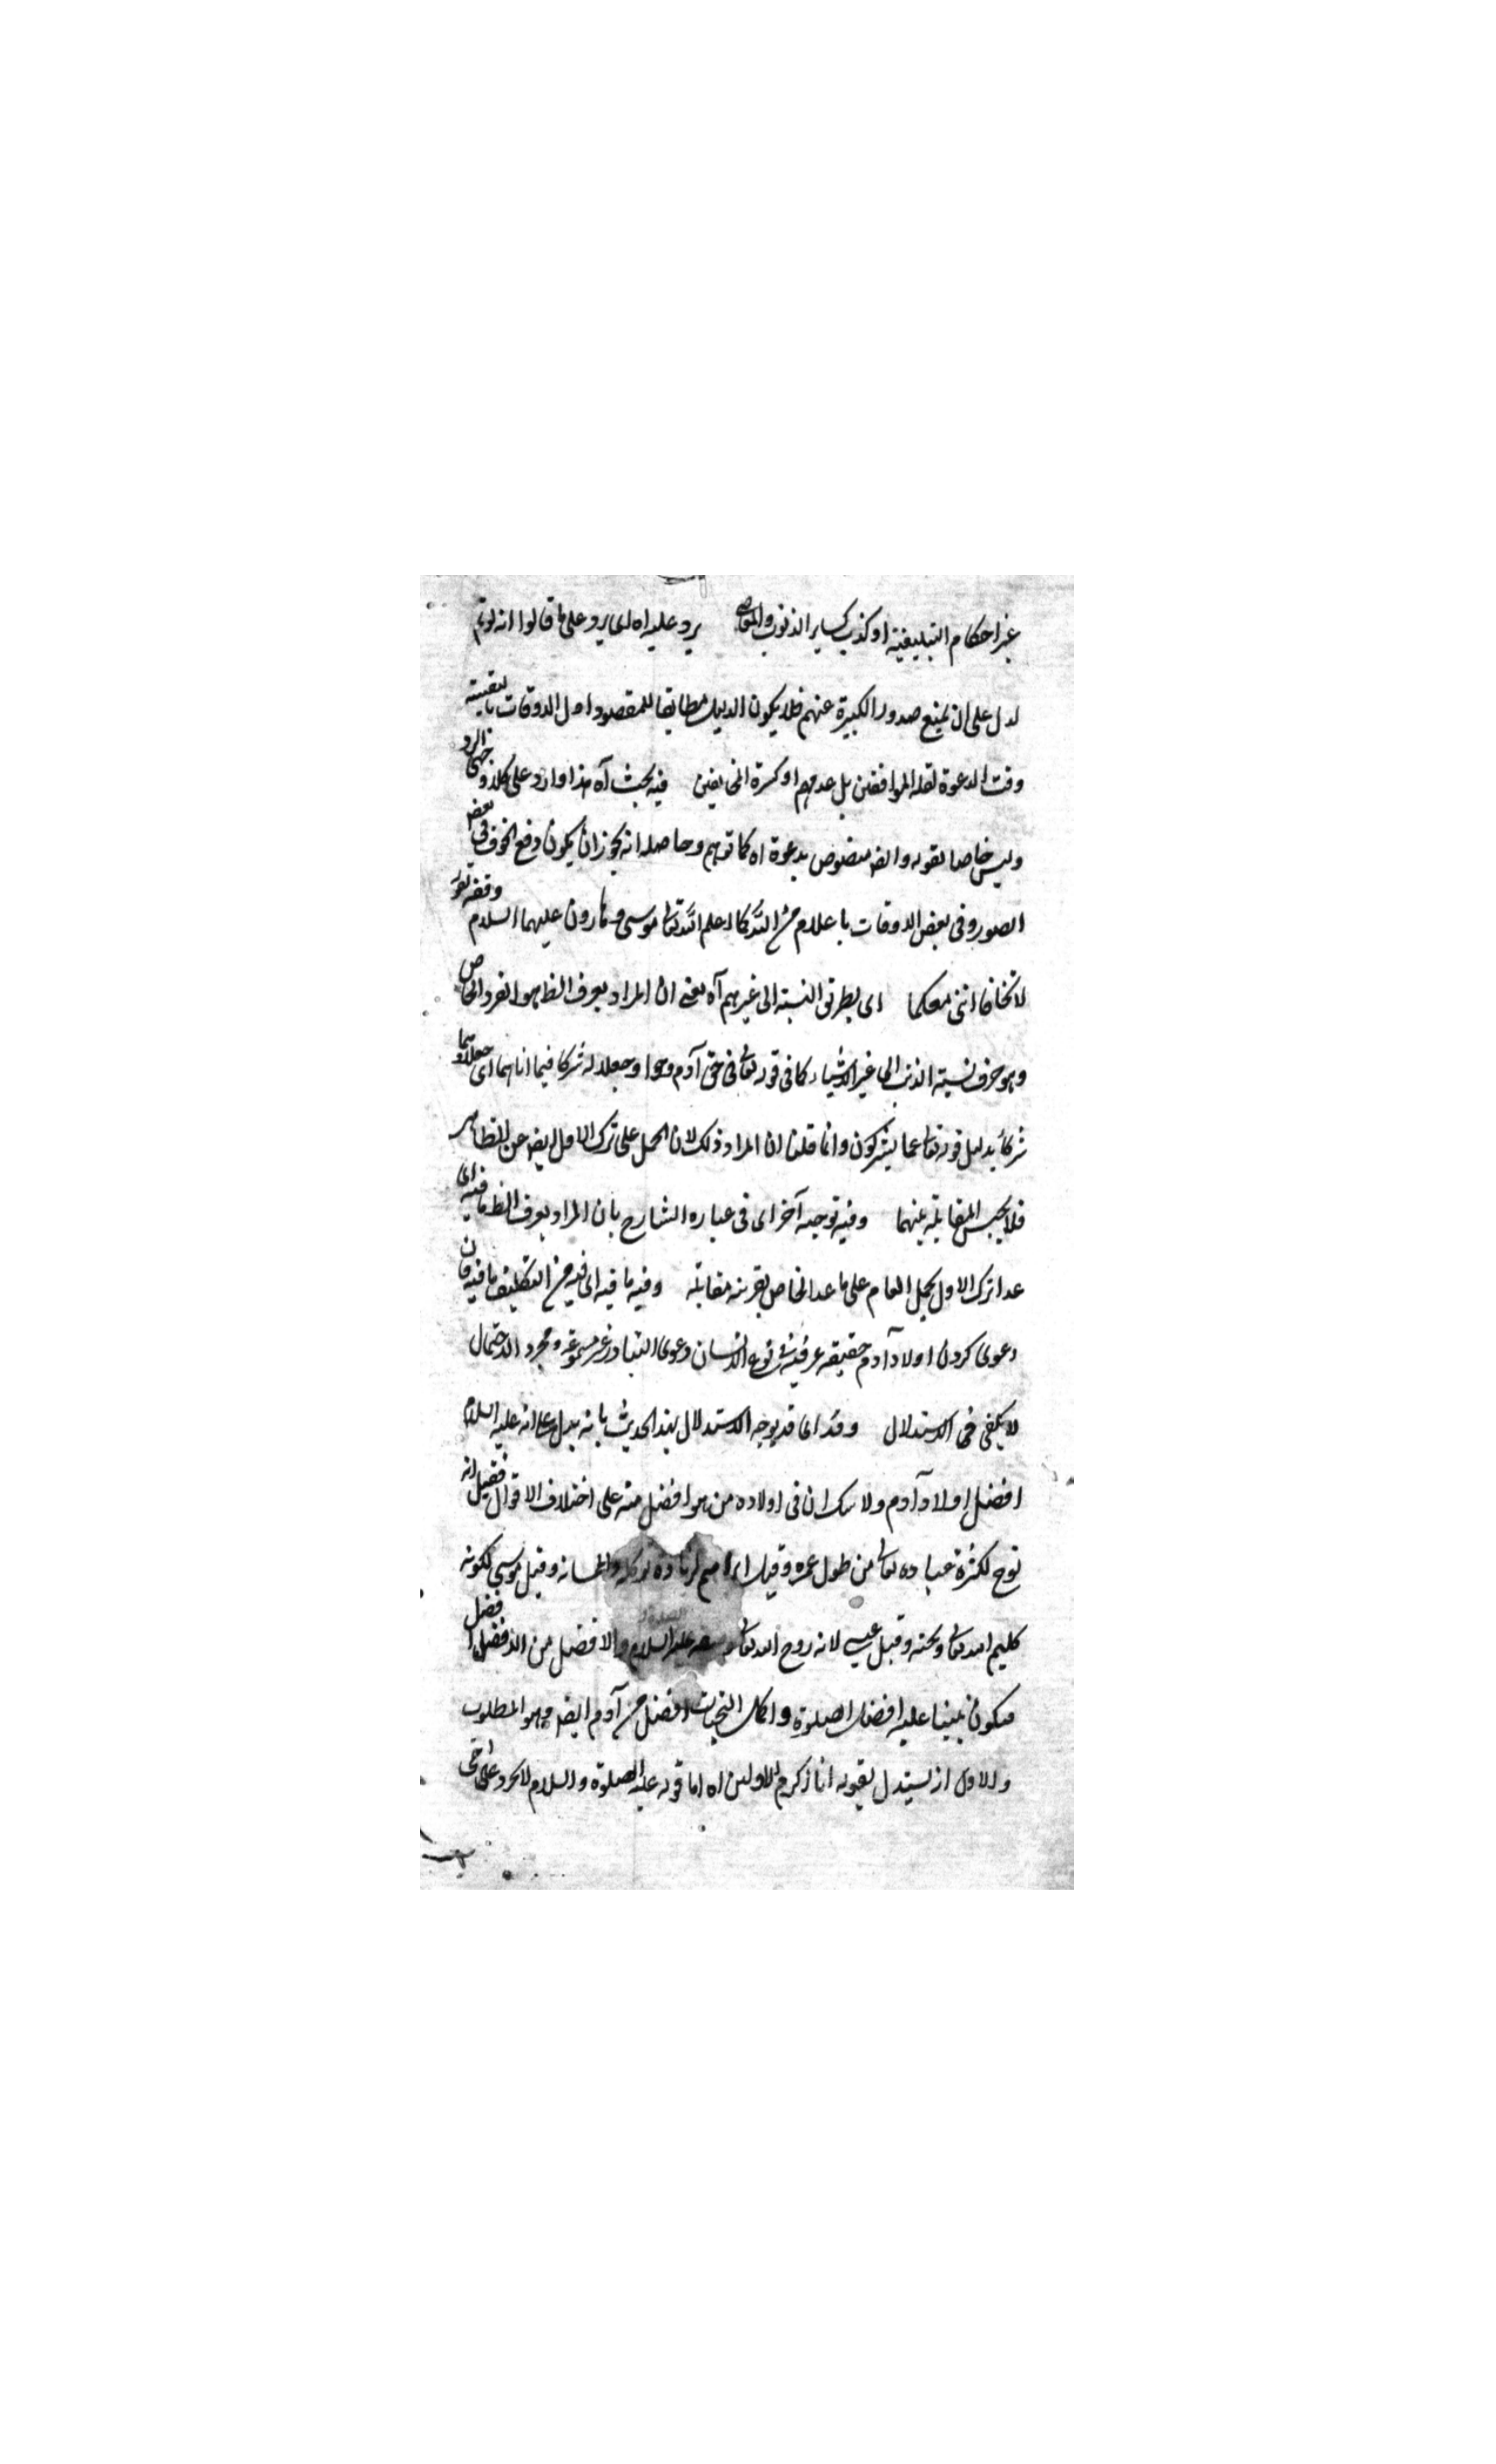 غير احكام التبليغية او كذب كساير الذنوب والمعاصى يرد عليه اه اى يرد على ما قالوا انه لو تم
لدل على ان يمنع صدور الكبيرة عنهم فلا يكون الدليل مطابقا للمقصود اول الاوقات بالتقية
وقت الدعوة لقلة الموافقين بل عدمهم او كثرة المخالفين فيه بحث آه هذا وارد على كلا وجهى الرد
وليس خاصا بقوله وايض منقوض بدعوة اه كما توهم وحاصله انه يجوز ان يكون دفع الخوف فى بعض
الصور وفى بعض الاوقات باعلام من الله كما اعلم الله تعالى موسى وهارون عليهما السلام بقوله
لا تخافا اننى معكما اى بطرق النسبة الى غيرهم آه يعنى ان المراد بصرف الظ هو الفرد الخاص
وهو صرف نسبة الذنب الى غير الانبياء كما فى قوله تعالى فى حق آدم وحوا وجعلا له شركا فيما اتاهما اى جعل اولادهما
شركاء بدليل قوله تعالى عما يشركون وانما قلنا ان المراد ذلك لان الحمل على ترك الاولى ايض عن الظاهر
فلا يحسن المقابلة بينهما وفيه توجيه آخر اى فى عبارة الشارح بان المراد بصرف الظ ما فيه اى
عدا ترك الاولى بحمل العام على ما عدا الخاص بقرينة مقابلة وفيه ما فيه اى فيه من التكلف ما فيه فان
دعوى كردن اولاد آدم حقيقة عرفية فى نوع الانسان ودعوى التبادر غير مسموعة ومجرد الاحتمال
لا يكفى فى الاستدلال وقد اى قد يوجه الاستدلال بهذا الحديث بانه يدل على انه عليه السلام
افضل اولاد آدم ولا شك ان فى اولاده من هو افضل منه على اختلاف الاقوال فقيل انه
نوح لكثرة عباده تعالى من طول عمره وقيل ابراهيم لزيادة توكله واطمئنانه وقيل موسى لكونه
كليم الله تعالى ونجيه وقيل عيسى لانه روح الله تعالى عليه السلام والافضل من الافضل افضل
فيكون نبينا عليه افضل الصلوة واكمل التحيات افضل من آدم ايض وهو المطلوب
والاولى ان يستدل بقوله انا اكرم الاولين اه اما قوله عليه الصلوة والسلام